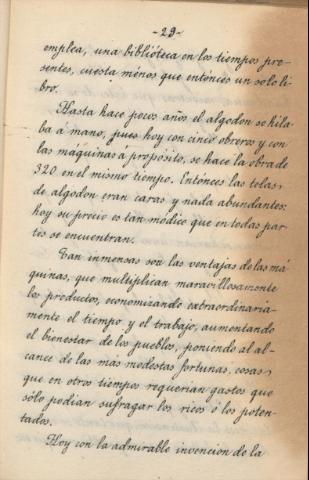 -29-
emplea, una biblióteca en los tiempos pre-
sentes, cuesta ménos que entónces un solo li-
bro.
Hasta hace pocos años el algodon se hila-
ba á mano, pues hoy con cinco obreros y con
las máquinas á propósito, se hace la obra de
320 en el mismo tiempo. Entónces las telas
de algodon eran caras y nada abundantes:
hoy su precio es tan módico que en todas par-
tes se encuentran.
Tan inmensas son las ventajas de las má-
quinas, que multiplican maravillosamente
los productos, economizando extraordinaria-
mente el tiempo y el trabajo, aumentando
el bienestar de los pueblos, poniendo al al-
cance de las más modestas fortunas, cosas
que en otros tiempos requerian gastos que
sólo podian sufragar los ricos ó los poten-
tados.
Hoy con la admirable invencion de la